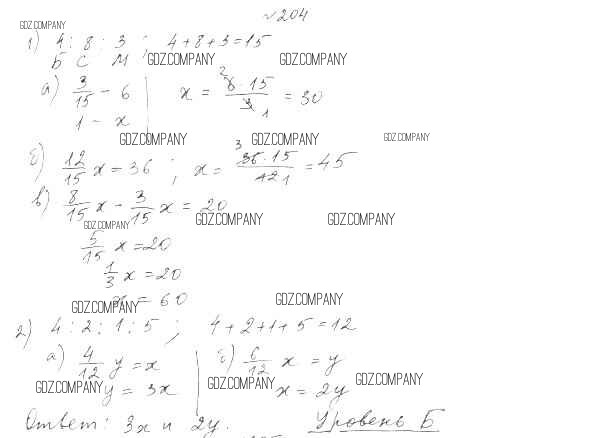 №204
GDZ.COMPANY
1) 4 : 8 : 3 ; 4+8+3=15
Б С М GDZ.COMPANY GDZ.COMPANY
а) 3/15 - 6 x = 6·15/3 = 30
2 1
1 - x
GDZ.COMPANY GDZ.COMPANY GDZ.COMPANY
б) 12/15 x = 36 ; x = 36·15/12 = 45
3 1
в) 8/15 x - 3/15 x = 20
GDZ.COMPANY GDZ.COMPANY GDZ.COMPANY
5/15 x = 20
1/3 x = 20
x = 60
GDZ.COMPANY GDZ.COMPANY
2) 4 : 2 : 1 : 5 ; 4+2+1+5=12
а) 4/12 y = x б) 6/12 x = y
GDZ.COMPANY y = 3x GDZ.COMPANY x = 2y GDZ.COMPANY
Ответ: 3x и 2y. Уровень Б